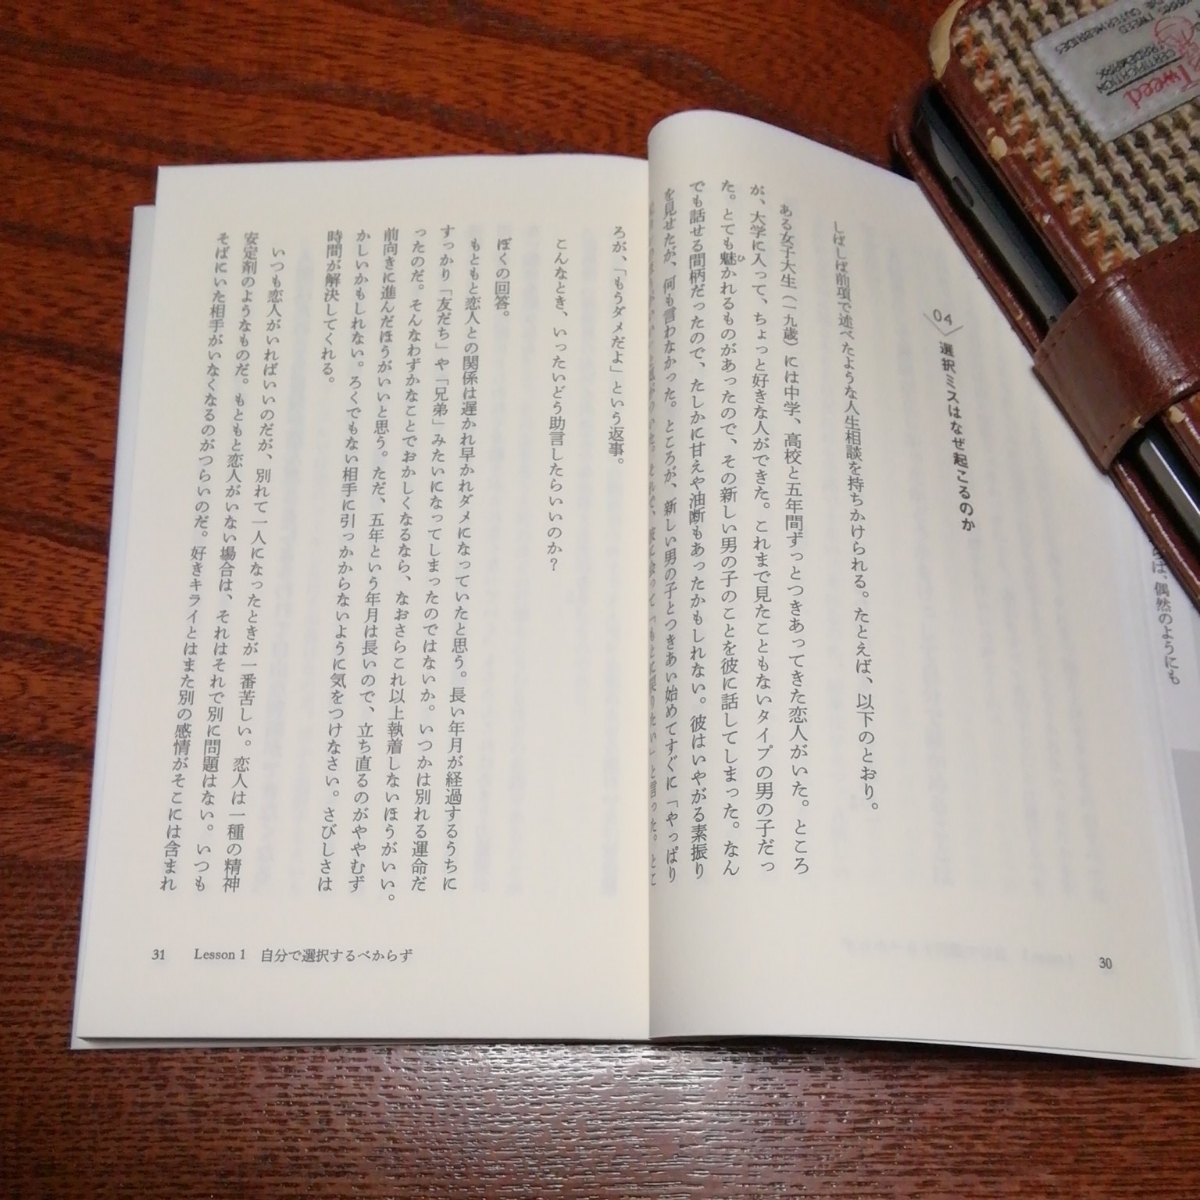 04
選択ミスはなぜ起こるのか
しばしば前項で述べたような人生相談を持ちかけられる。たとえば、以下のとおり。
ある女子大生（一九歳）には中学、高校と五年間ずっとつきあってきた恋人がいた。ところ
が、大学に入って、ちょっと好きな人ができた。これまで見たこともないタイプの男の子だっ
た。とても魅かれるものがあったので、その新しい男の子のことを彼に話してしまった。なん
ひ
でも話せる間柄だったので、たしかに甘えや油断もあったかもしれない。彼はいやがる素振り
を見せたが、何も言わなかった。ところが、新しい男の子とつきあい始めてすぐに「やっぱり
と言った。とこ
30
ろが、「もうダメだよ」という返事。
こんなとき、いったいどう助言したらいいのか？
ぼくの回答。
もともと恋人との関係は遅かれ早かれダメになっていたと思う。長い年月が経過するうちに
すっかり「友だち」や「兄弟」みたいになってしまったのではないか。いつかは別れる運命だ
ったのだ。そんなわずかなことでおかしくなるなら、なおさらこれ以上執着しないほうがいい。
前向きに進んだほうがいいと思う。ただ、五年という年月は長いので、立ち直るのがややむず
かしいかもしれない。ろくでもない相手に引っかからないように気をつけなさい。さびしさは
時間が解決してくれる。
いつも恋人がいればいいのだが、別れて一人になったときが一番苦しい。恋人は一種の精神
安定剤のようなものだ。もともと恋人がいない場合は、それはそれで別に問題はない。いつも
そばにいた相手がいなくなるのがつらいのだ。好きキライとはまた別の感情がそこには含まれ
31 Lesson 1 自分で選択するべからず
は、偶然のようにも
Tweed
CERTIFICATION